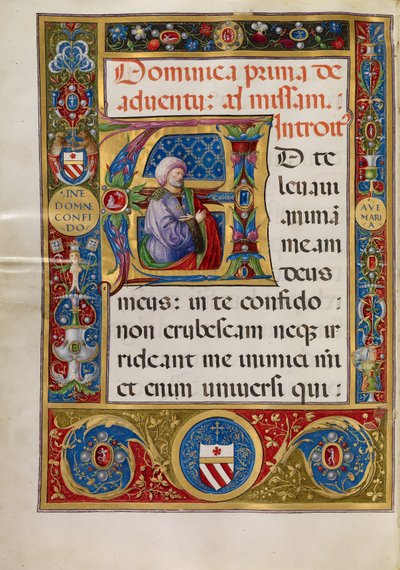 Dominica prima de
aduentu: ad missam.
Introitꝰ
AD te
leuaui
animā
meam
deus
meus: in te confido
non erubescam neqꝫ ir
rideant me inimici mi
et enim uniuersi qui:
INE
DOMNE
CONFI
DO
AVE
MARI
A